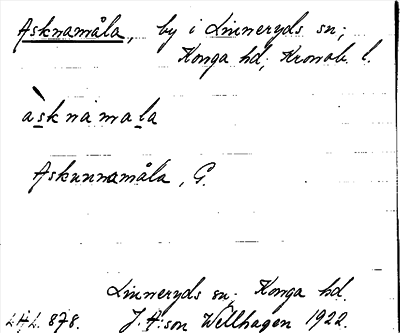 Asknamåla, by i Linneryds sn;
Konga hd; Kronob. l.
àsknamala
Askunnamåla, G.
Linneryds sn; Konga hd.
LHL. 878. J. A:son Wellhagen 1922.